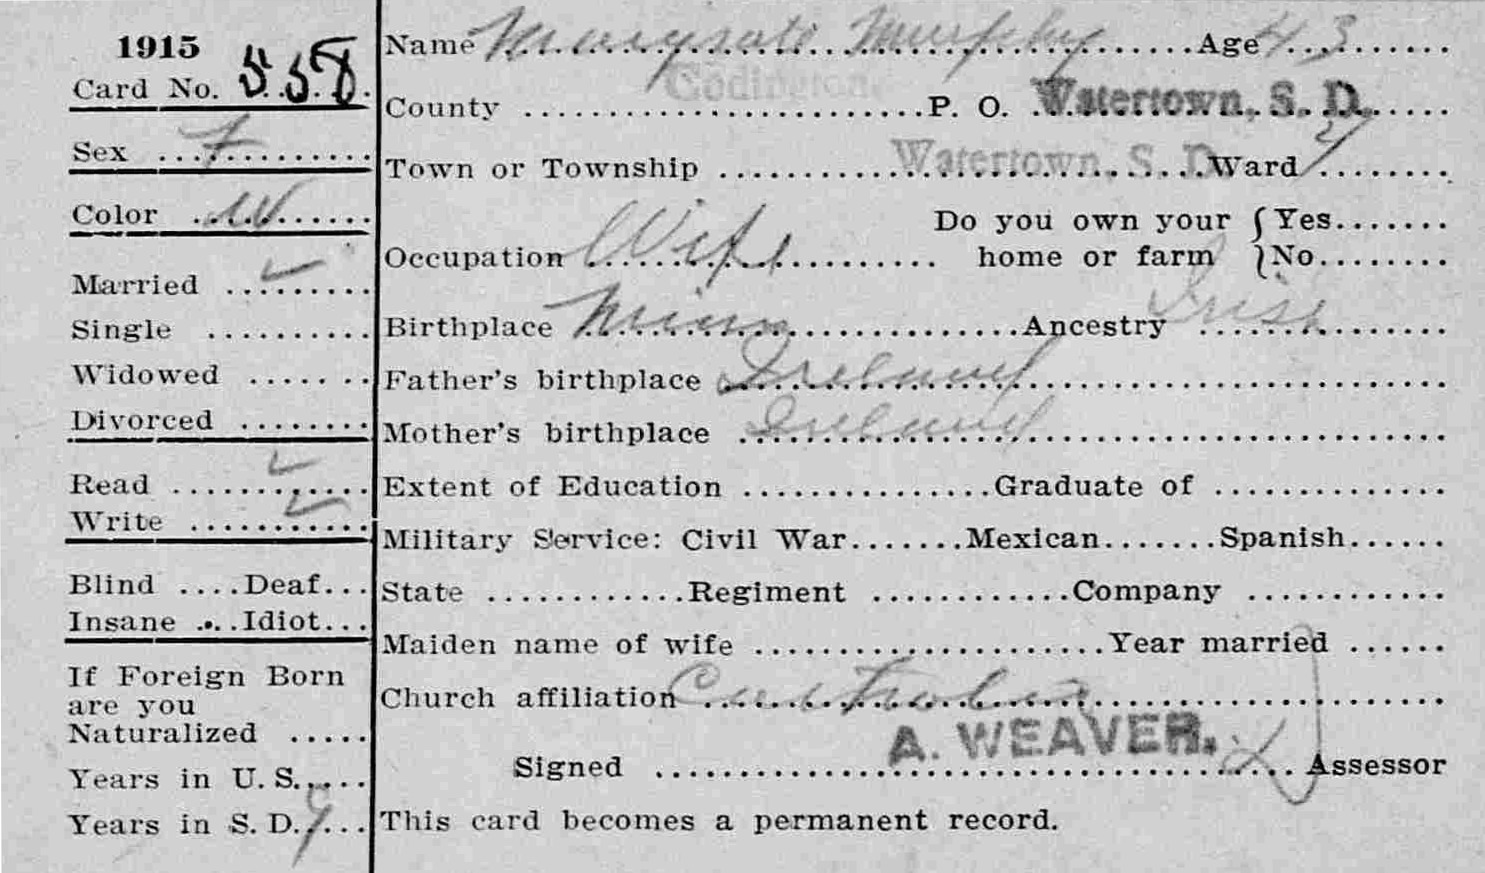 1915
Card No. 558
Sex F
Color W
Married ✓
Single
Widowed
Divorced
Read ✓
Write ✓
Blind .... Deaf...
Insane ... Idiot...
If Foreign Born
are you
Naturalized .....
Years in U. S. .....
Years in S. D. 9
Name Murphy Age 43
County Codington P. O. Watertown, S. D.
Town or Township Watertown, S. D. Ward
Occupation Wife Do you own your { Yes.......
home or farm } No........
Birthplace Minn Ancestry Irish
Father's birthplace Ireland
Mother's birthplace Ireland
Extent of Education ............... Graduate of ..............
Military Service: Civil War....... Mexican....... Spanish......
State ............ Regiment ............ Company ............
Maiden name of wife ...................... Year married ......
Church affiliation
A. WEAVER.
Signed ........................................ Assessor
This card becomes a permanent record.